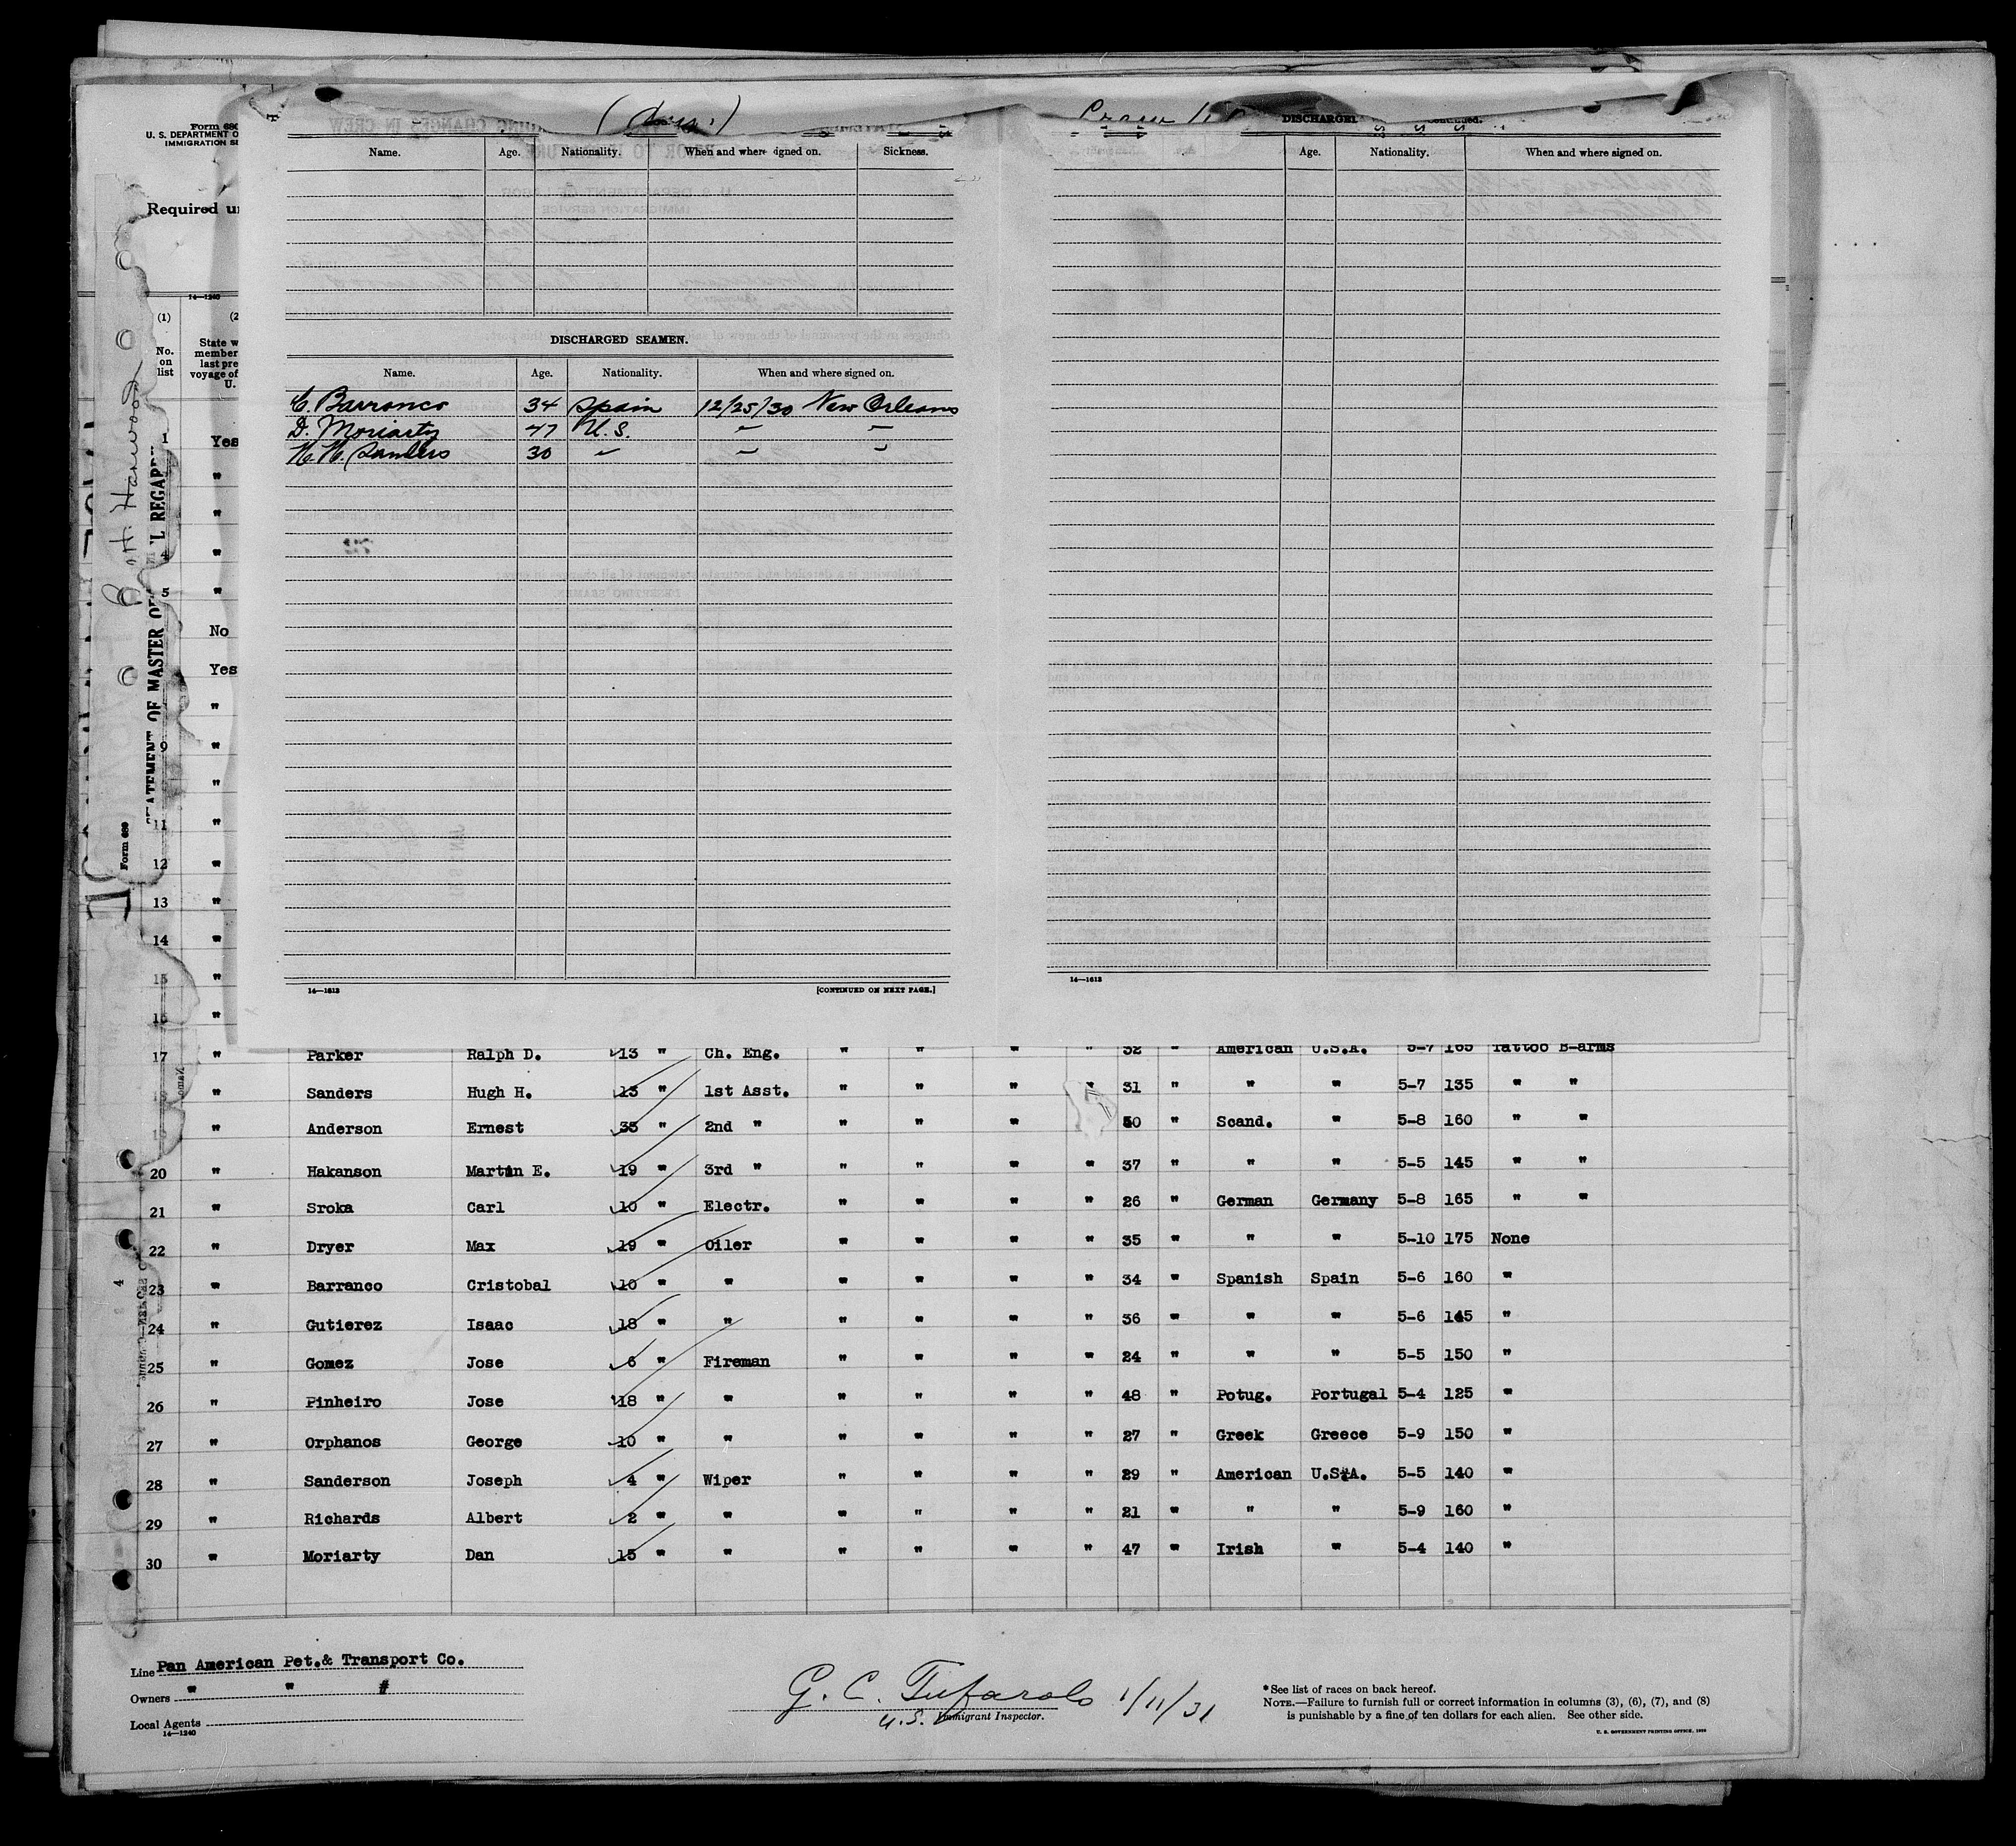 Form 680
U. S. DEPARTMENT O
IMMIGRATION SE
Required un
DISCHARGE
Name. Age. Nationality. When and where signed on. Sickness.
Age. Nationality. When and where signed on.
DISCHARGED SEAMEN.
Name. Age. Nationality. When and where signed on.
C. Barranco 34 Spain 12/25/30 New Orleans
D. Moriarty 47 U.S. " "
H. H. Sanders 30 " " "
14—1613 [CONTINUED ON NEXT PAGE.]
14—1613
R. H. Harwood
STATEMENT OF MASTER OF
L REGARD
Form 689
14—1240
(1) (2
No. on list
State w
member
last pre
voyage of
U.
1 Yes
"
"
4 "
5 "
No
Yes
"
9 "
"
11 "
12 "
13 "
14 "
15 "
16 "
17 " Parker Ralph D. 13 " Ch. Eng. " " " " 32 " American U.S.A. 5-7 165 Tattoo B-arms
" Sanders Hugh H. 13 " 1st Asst. " " " " 31 " " " 5-7 135 " "
19 " Anderson Ernest 35 " 2nd " " " " 50 " Scand. " 5-8 160 " "
20 " Hakanson Martin E. 19 " 3rd " " " " " 37 " " " 5-5 145 " "
21 " Sroka Carl 10 " Electr. " " " " 26 " German Germany 5-8 165 " "
22 " Dryer Max 19 " Oiler " " " " 35 " " " 5-10 175 None
23 " Barranco Cristobal 10 " " " " " " 34 " Spanish Spain 5-6 160 "
24 " Gutierez Isaac 18 " " " " " " 36 " " " 5-6 145 "
25 " Gomez Jose 6 " Fireman " " " " 24 " " " 5-5 150 "
26 " Pinheiro Jose 18 " " " " " " 48 " Potug. Portugal 5-4 125 "
27 " Orphanos George 10 " " " " " " 27 " Greek Greece 5-9 150 "
28 " Sanderson Joseph 4 " Wiper " " " " 29 " American U.S.A. 5-5 140 "
29 " Richards Albert 2 " " " " " " 21 " " " 5-9 160 "
30 " Moriarty Dan 15 " " " " " " 47 " Irish " 5-4 140 "
Line Pan American Pet.& Transport Co.
Owners " " #
Local Agents
14—1240
G. C. Tufarolo 1/11/31
U.S. Immigrant Inspector.
*See list of races on back hereof.
NOTE.—Failure to furnish full or correct information in columns (3), (6), (7), and (8)
is punishable by a fine of ten dollars for each alien. See other side.
U. S. GOVERNMENT PRINTING OFFICE